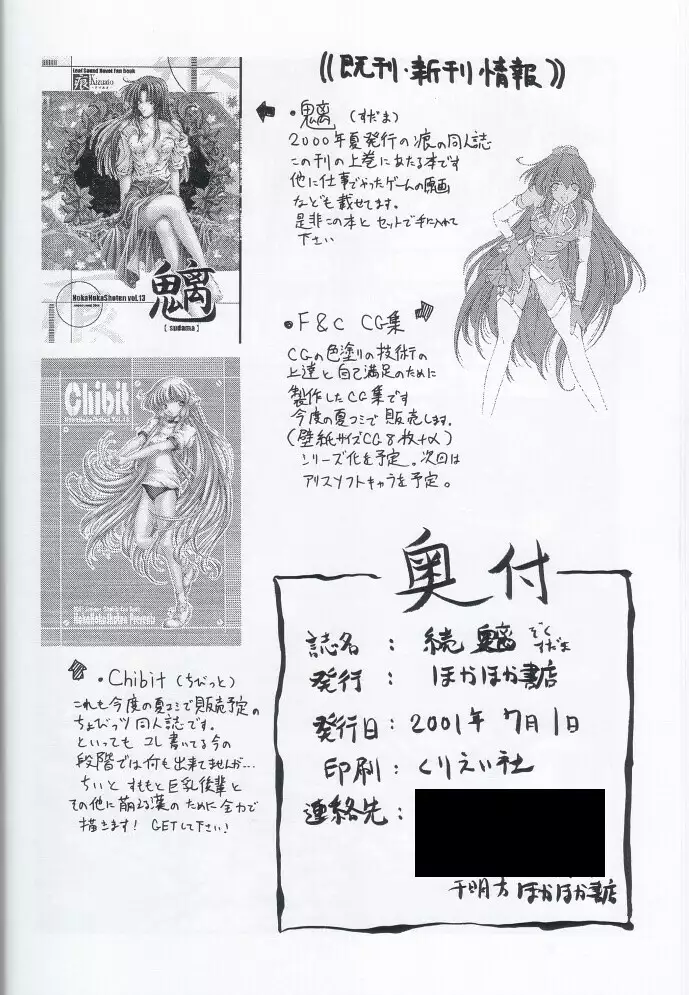 ((既刊・新刊情報))
Leaf Sound Novel Fan book
痕 Kizuato
魑
HokaHokaShoten vol.13
【 sudama 】
・魑 (すだま)
2000年夏発行の痕の同人誌
この刊の上巻にあたる本です
他に仕事でやったゲームの原画
なども載せてます。
是非この本とセットで手に入れて
下さい
・F&C CG集
CGの色塗りの技術の
上達と自己満足のために
製作したCG集です
今度の夏コミで販売します。
(壁紙サイズCG8枚+α)
シリーズ化を予定。次回は
アリスソフトキャラを予定。
Chibit
2001 Summer
HokaHokaShoten Presents
・Chibit (ちびっと)
これも今度の夏コミで販売予定の
ちょびっツ同人誌です。
といってもコレ書いてる今の
段階では何も出来てませんが…
ちぃとすももと巨乳後輩と
その他に萌える漢のために全力で
描きます! GETして下さい!
奥付
誌名 : 続 魑 ぞくすだま
発行 : ほかほか書店
発行日 : 2001年7月1日
印刷 : くりえい社
連絡先 :
千明方 ほかほか書店